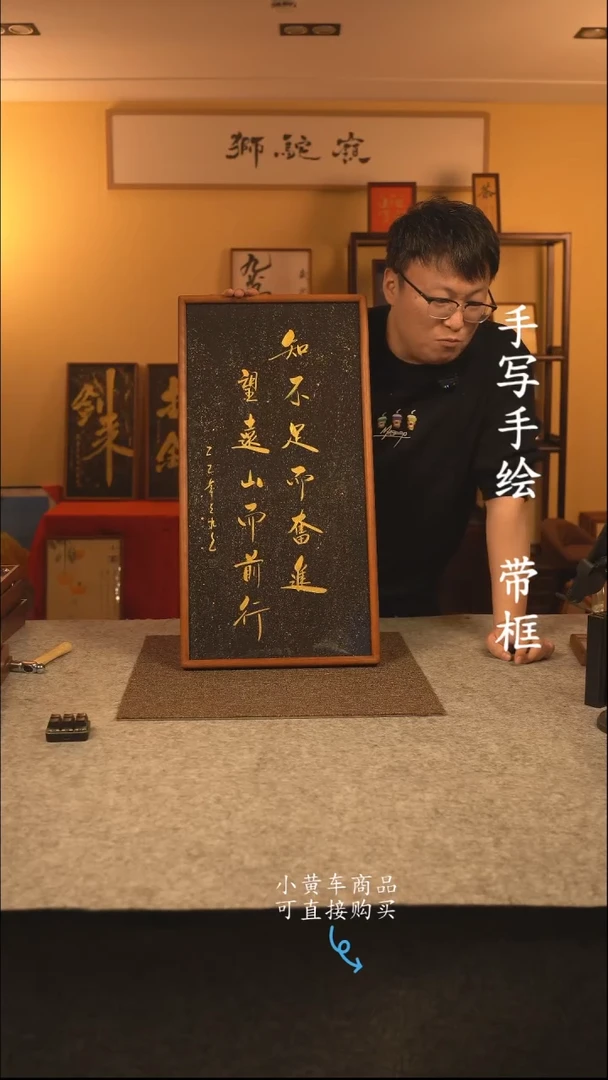 獅駝窟
知不足而奮進
望遠山而前行
劍来
手写手绘 带框
小黄车商品
可直接购买